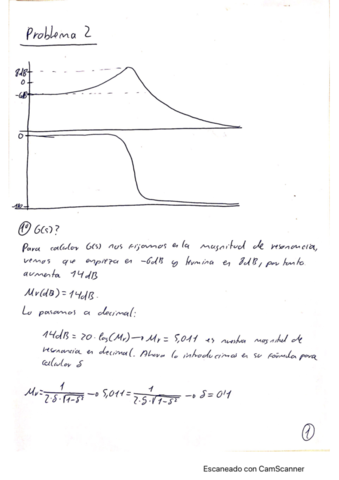 Problema 2
8dB
0
-6dB
0
-180
1º G(s)?
Para calcular G(s) nos fijamos en la magnitud de resonancia,
vemos que empieza en -6dB y termina en 8dB, por tanto
aumenta 14dB
Mr(dB) = 14dB.
Lo pasamos a decimal:
14dB = 20·log(Mr) → Mr = 5,011 es nuestra magnitud de
resonancia en decimal. Ahora lo introducimos en su fórmula para
calcular δ
Mr = 1/(2·δ·√(1-δ²)) → 5,011 = 1/(2·δ·√(1-δ²)) → δ = 0'1
1
Escaneado con CamScanner